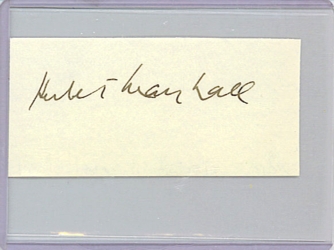 Herbert Marshall